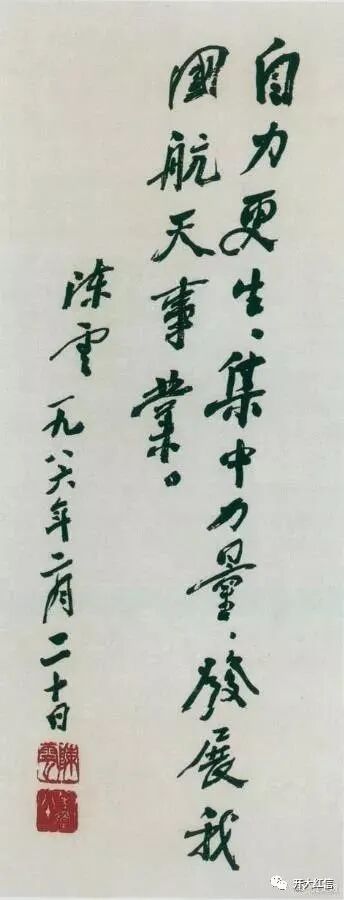 自力更生、集中力量、發展我
國航天事業。
陳雲 一九八六年二月二十日
陳雲
开大红信